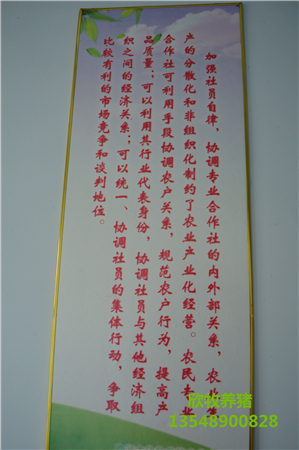 加强社员自律，协调专业合作社的内外部关系，农业生
产的分散化和非组织化制约了农业产业化经营。农民专业
合作社可利用手段协调农户关系，规范农户行为，提高产
品质量；可以利用其行业代表身份，协调社员与其他经济组
织之间的经济关系；可以统一、协调社员的集体行动，争取
比较有利的市场竞争和谈判地位。
欣牧养猪
13548900828